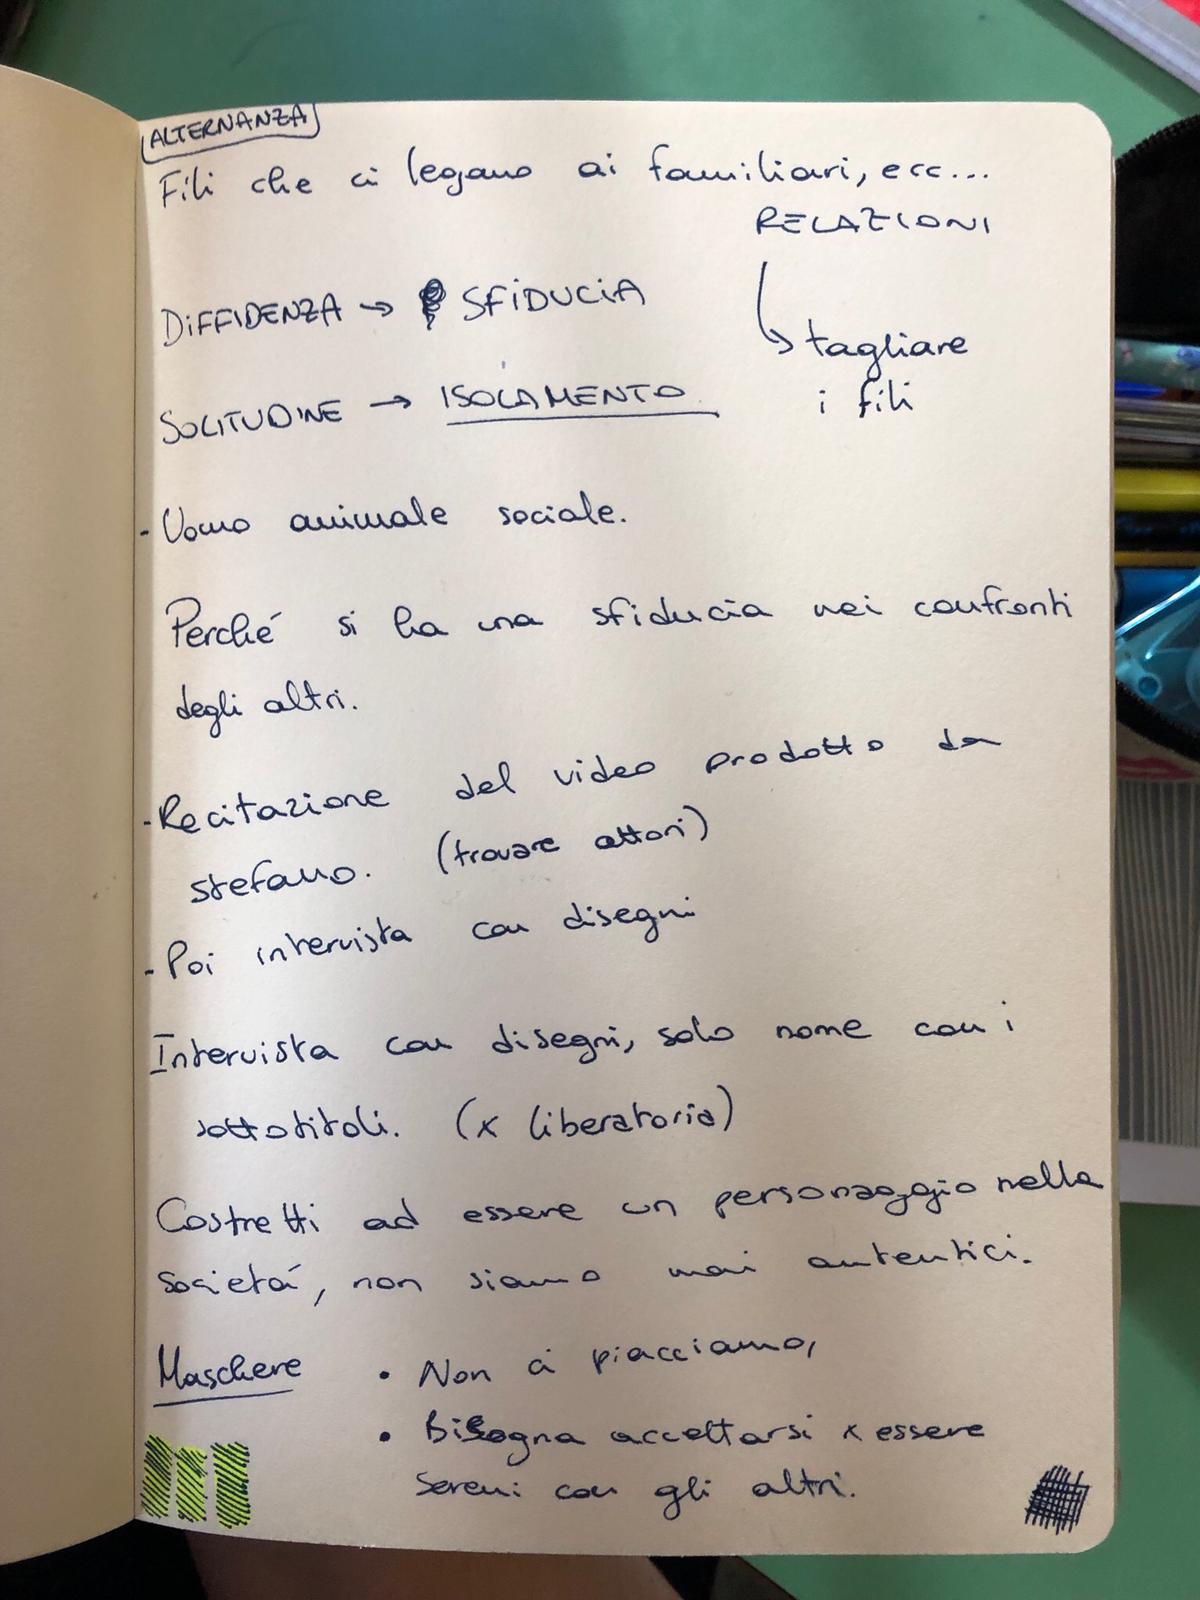 ALTERNANZA
Fili che ci legano ai familiari, ecc...
RELAZIONI
DIFFIDENZA → SFIDUCIA
↳ tagliare
i fili
SOLITUDINE → ISOLAMENTO
- Uomo animale sociale.
Perché si ha una sfiducia nei confronti
degli altri.
- Recitazione del video prodotto da
stefano. (trovare attori)
- Poi intervista con disegni
Intervista con disegni, solo nome con i
sottotitoli. (x liberatoria)
Costretti ad essere un personaggio nella
societá, non siamo mai autentici.
Maschere • Non ci piacciamo,
• Bisogna accettarsi x essere
sereni con gli altri.